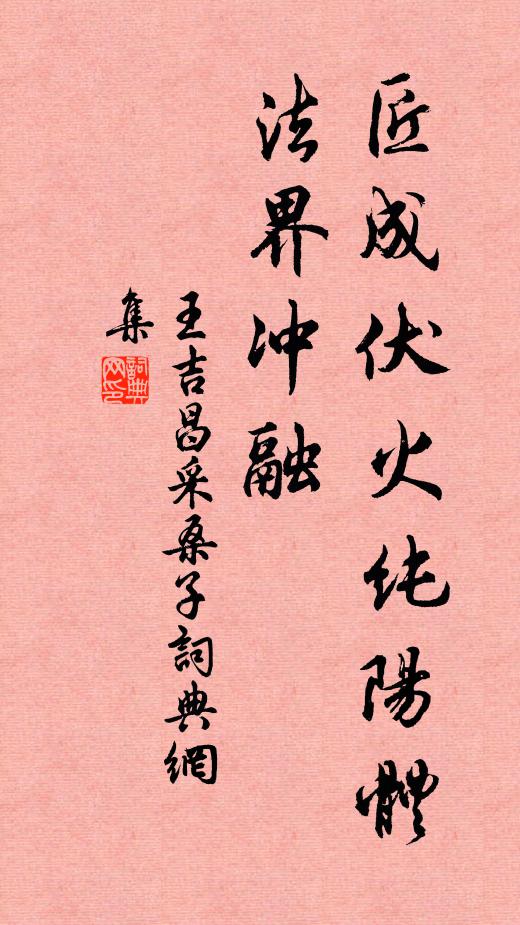 匠成伏火纯陽體
法界冲融
王吉昌采桑子詞典網
集
詞典
网印